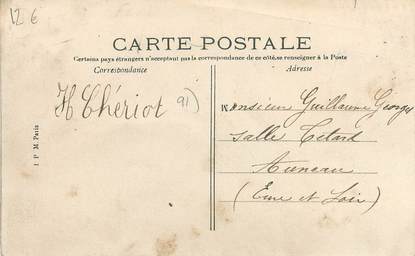 12 €
CARTE POSTALE
Certains pays étrangers n'acceptant pas la correspondance de ce côté, se renseigner à la Poste
Correspondance
Adresse
H Chériot 91)
Monsieur Guillaume Georges
Salle Tétard
Auneau
(Eure et Loir)
I P M Paris